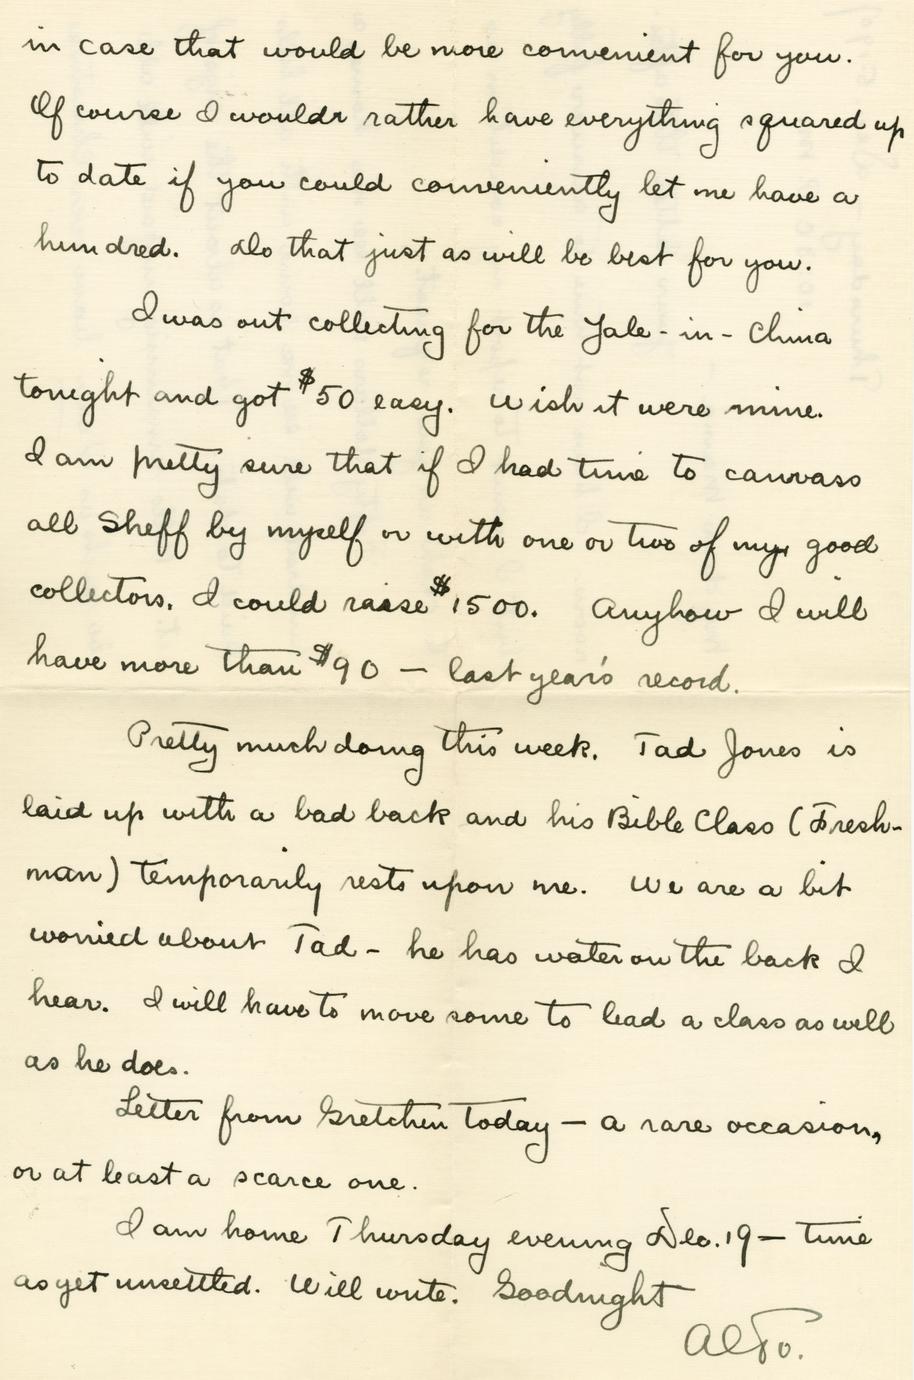 in case that would be more convenient for you.
Of course I wouldr rather have everything squared up
to date if you could conveniently let me have a
hundred. Do that just as will be best for you.
I was out collecting for the Yale-in-China
tonight and got $50 easy. Wish it were mine.
I am pretty sure that if I had time to canvass
all Sheff by myself or with one or two of my good
collectors, I could raise $1500. Anyhow I will
have more than $90 — last year's record.
Pretty much doing this week. Tad Jones is
laid up with a bad back and his Bible Class (Fresh-
man) temporarily rests upon me. We are a bit
worried about Tad - he has water on the back I
hear. I will have to move some to lead a class as well
as he does.
Letter from Gretchen today — a rare occasion,
or at least a scarce one.
I am home Thursday evening Dec. 19 — time
as yet unsettled. Will write. Goodnight